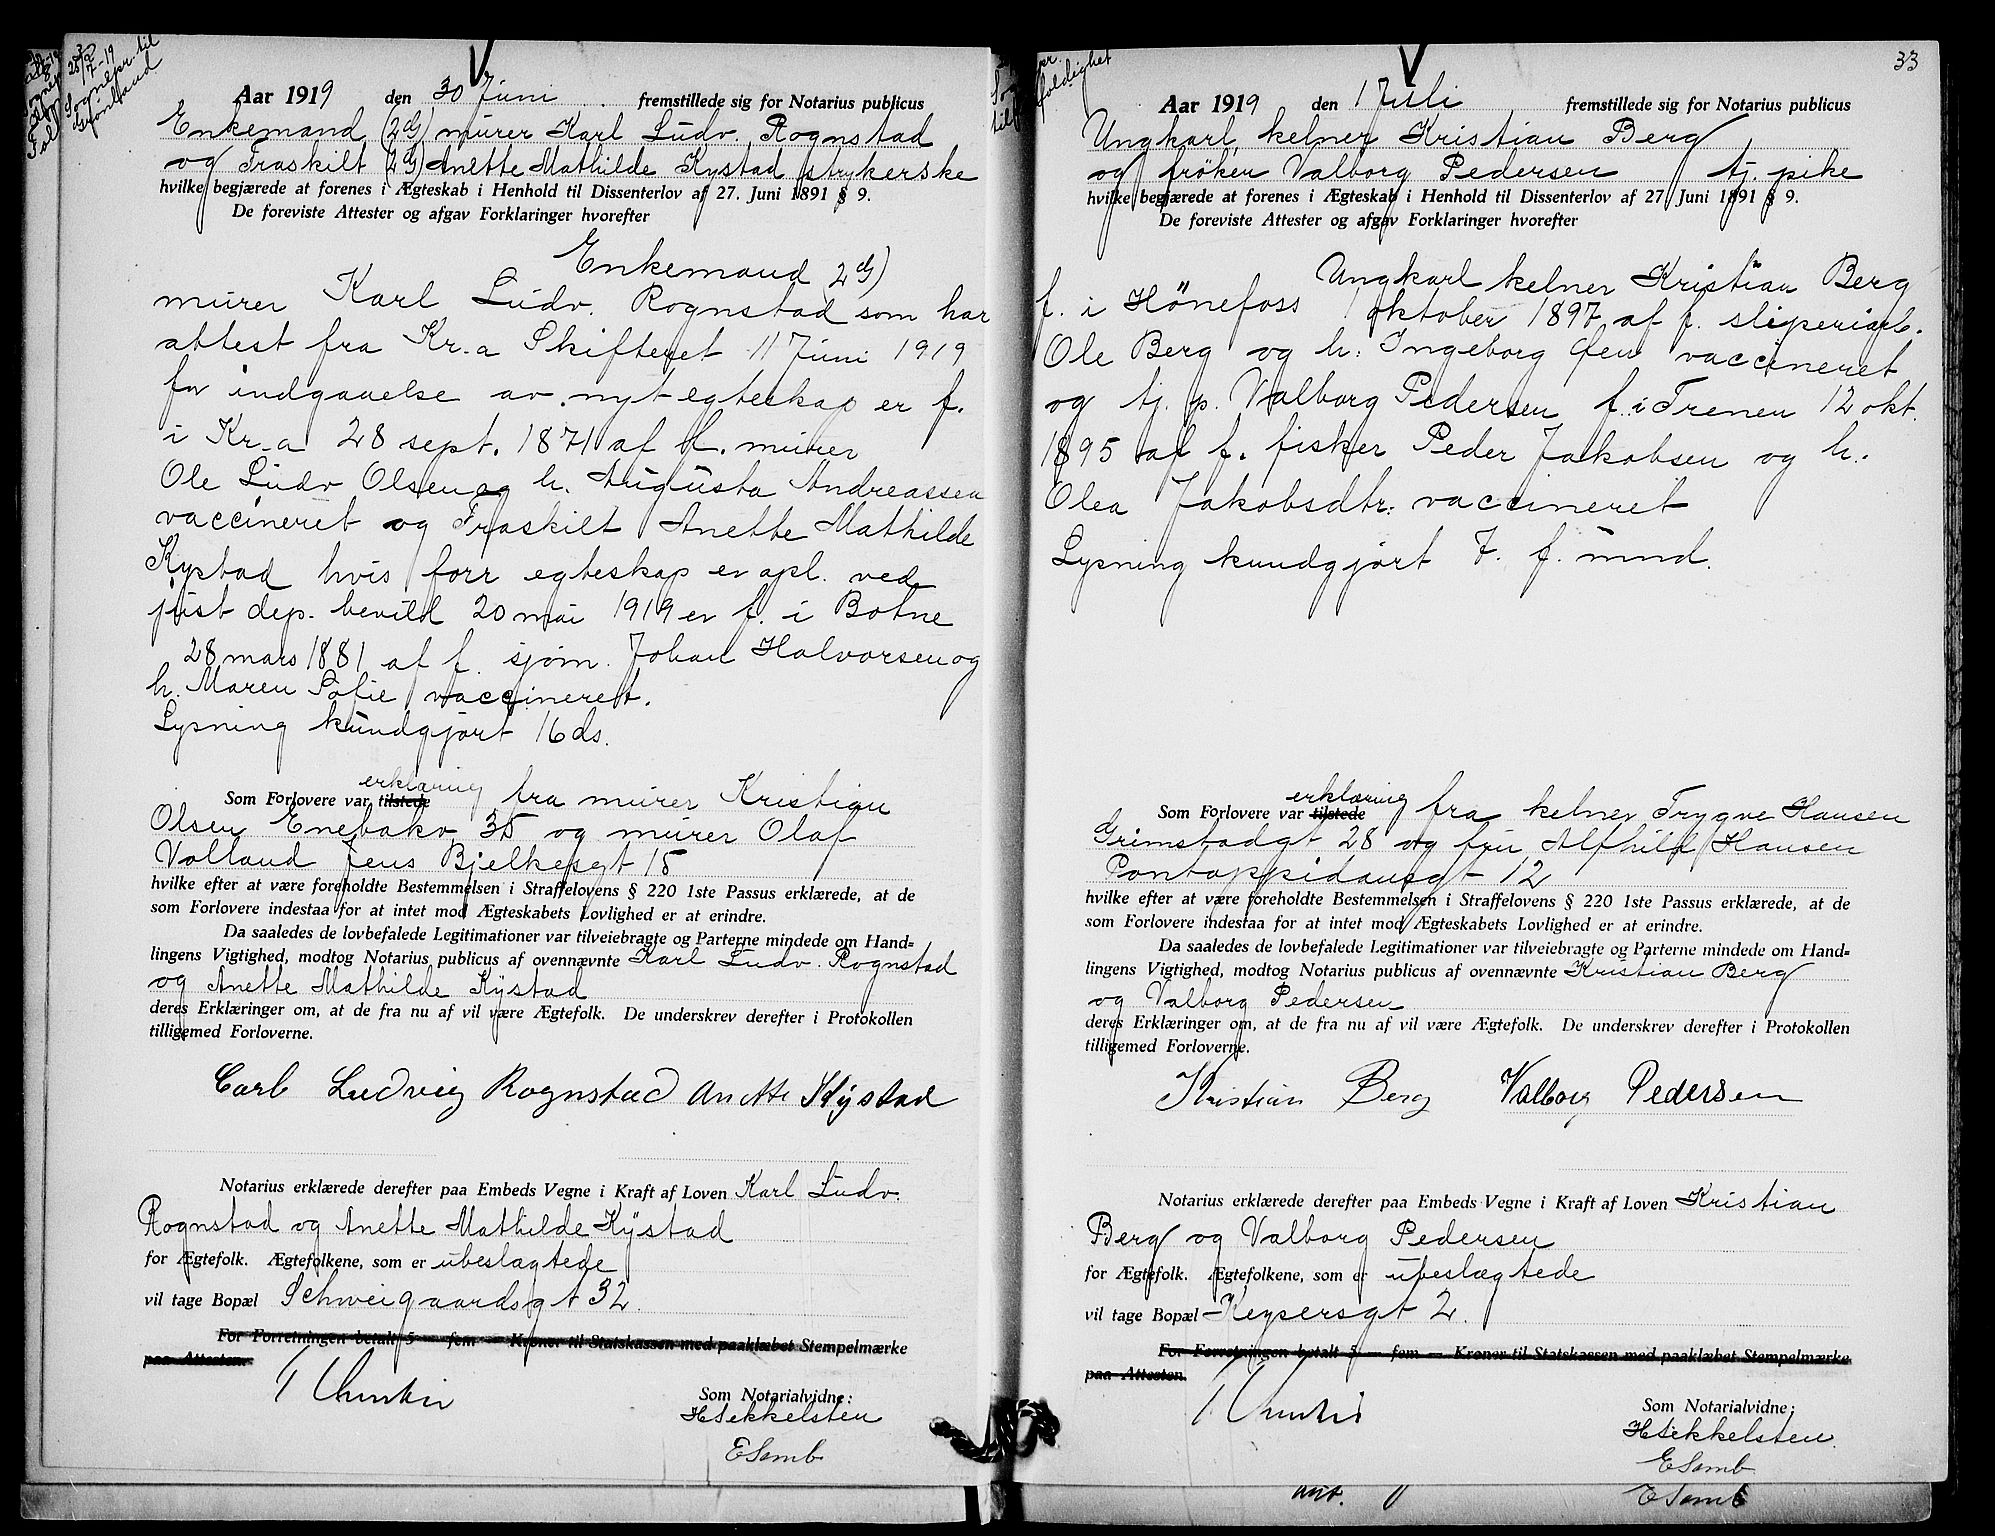 28/7-19
Sognepr. til
Grønland
Aar 1919 den 30 Juni fremstillede sig for Notarius publicus
Enkemand (2 G) murer Karl Ludv. Rognstad
og Fraskilt (2 G) Anette Mathilde Kystad strykerske
hvilke begjærede at forenes i Ægteskab i Henhold til Dissenterlov af 27. Juni 1891 § 9.
De foreviste Attester og afgav Forklaringer hvorefter
Enkemand 2 G)
murer Karl Ludv. Rognstad som har
attest fra Kr.a Skifteret 11 Juni 1919
for indgaaelse av nyt egteskap er f.
i Kr.a 28 sept. 1871 af f. murer
Ole Ludv Olsen og h. Augusta Andreassen
vaccineret og Fraskilt Anette Mathilde
Kystad hvis forr egteskap er opl. ved
just dep. bevild 20 mai 1919 er f. i Botne
28 mars 1881 af f. sjøm. Johan Halvorsen og
h. Maren Sofie vaccineret.
Lysning kundgjort 16 ds.
erklæring
Som Forlovere var tilstede fra murer Kristian
Olsen Enebakv 35 og murer Olaf
Volland Jens Bjelkesgt 15
hvilke efter at være foreholdte Bestemmelsen i Straffelovens § 220 1ste Passus erklærede, at de
som Forlovere indestaa for at intet mod Ægteskabets Lovlighed er at erindre.
Da saaledes de lovbefalede Legitimationer var tilveiebragte og Parterne mindede om Hand=
lingens Vigtighed, modtog Notarius publicus af ovennævnte Karl Ludv. Rognstad
og Anette Mathilde Kystad
deres Erklæringer om, at de fra nu af vil være Ægtefolk. De underskrev derefter i Protokollen
tilligemed Forloverne.
Carl Ludvig Rognstad Anette Kystad
Notarius erklærede derefter paa Embeds Vegne i Kraft af Loven Karl Ludv.
Rognstad og Anette Mathilde Kystad
for Ægtefolk. Ægtefolkene, som er ubeslægtede
vil tage Bopæl Schweigaardsgt 32.
For Forretningen betalt 5 — fem — Kroner til Statskassen med paaklæbet Stempelmærke
paa Attesten.
Som Notarialvidne:
HSikkelsten
ESamb
33
Aar 1919 den 1 Juli fremstillede sig for Notarius publicus
Ungkarl, kelner Kristian Berg
og frøken Valborg Pedersen tj. pike
hvilke begjærede at forenes i Ægteskab i Henhold til Dissenterlov af 27 Juni 1891 § 9.
De foreviste Attester og afgav Forklaringer hvorefter
Ungkarl kelner Kristian Berg
f. i Hønefoss 1 oktober 1897 af f. sliperiarb.
Ole Berg og h. Ingeborg vaccineret
og tj. p. Valborg Pedersen f. i Trenen 12 okt.
1895 af f. fisker Peder Jakobsen og h.
Olea Jakobsdtr. vaccineret
Lysning kundgjort 7. f. mnd.
erklæring
Som Forlovere var tilstede fra kelner Trygve Hansen
Grimstadgt 28 og fru Alfhild Hansen
Pontoppidansgt 12
hvilke efter at være foreholdte Bestemmelsen i Straffelovens § 220 1ste Passus erklærede, at de
som Forlovere indestaa for at intet mod Ægteskabets Lovlighed er at erindre.
Da saaledes de lovbefalede Legitimationer var tilveiebragte og Parterne mindede om Hand=
lingens Vigtighed, modtog Notarius publicus af ovennævnte Kristian Berg
og Valborg Pedersen
deres Erklæringer om, at de fra nu af vil være Ægtefolk. De underskrev derefter i Protokollen
tilligemed Forloverne.
Kristian Berg Valborg Pedersen
Notarius erklærede derefter paa Embeds Vegne i Kraft af Loven Kristian
Berg og Valborg Pedersen
for Ægtefolk. Ægtefolkene, som er ubeslægtede
vil tage Bopæl Keysersgt 2.
For Forretningen betalt 5 — fem — Kroner til Statskassen med paaklæbet Stempelmærke
paa Attesten.
Som Notarialvidne:
HSikkelsten
ESamb
ESamb